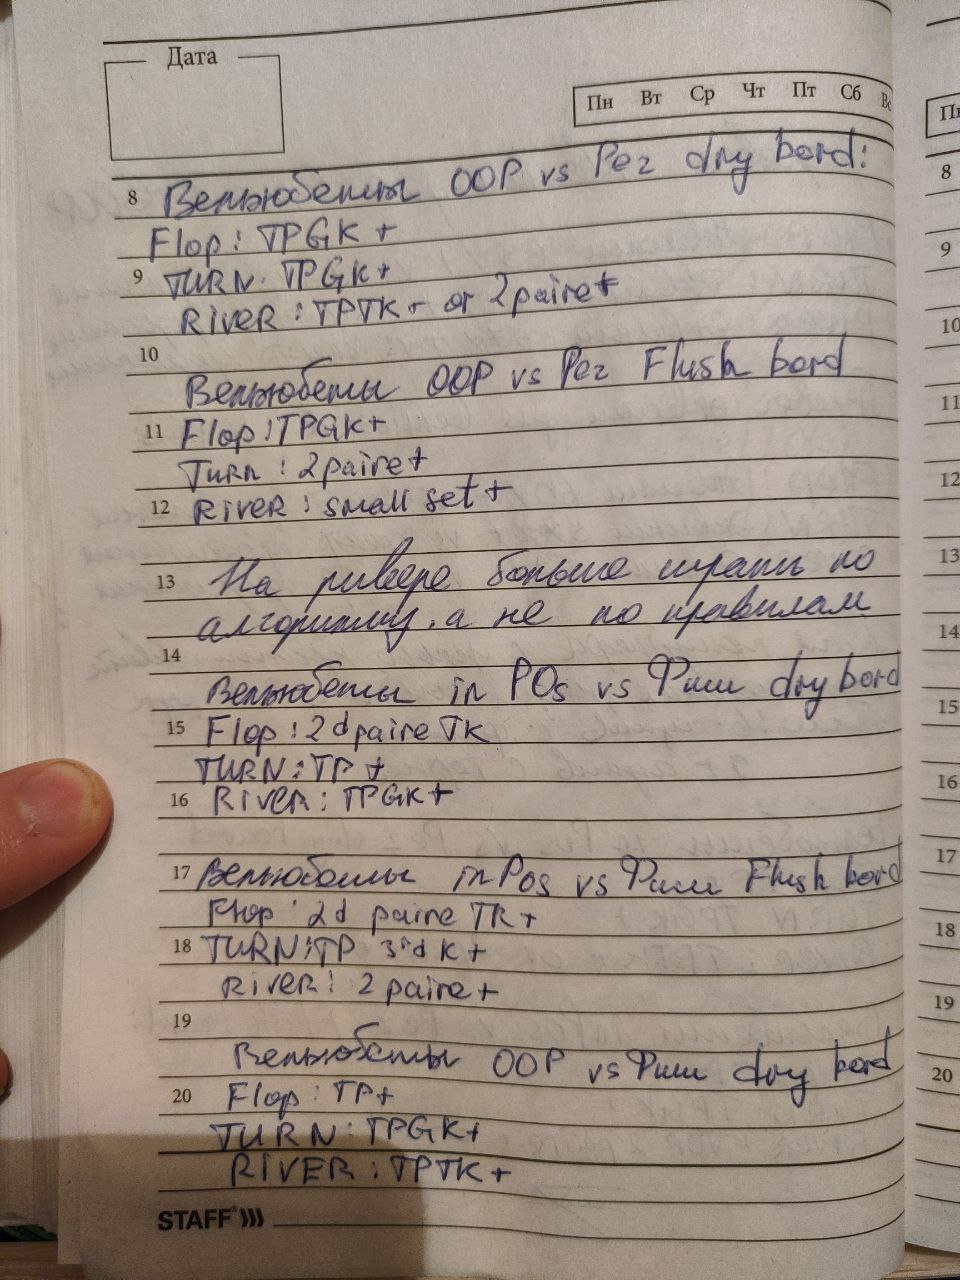 Дата
Пн Вт Ср Чт Пт Сб Вс
8 Вельюбеты OOP vs Рег dry bord:
Flop: TPGK+
9 TURN: TPGK+
RiveR: TPTK+ or 2 paire+
10
Вельюбеты OOP vs Рег Flush bord
11 Flop: TPGK+
Turn: 2 paire+
12 RiveR: small set+
13 На ривере больше играть по
алгоритму, а не по правилам
14
Вельюбеты in POs vs Фиш dry bord
15 Flop: 2d paire TK
TURN: TP+
16 RiveR: TPGK+
17 Вельюбеты in Pos vs Фиш Flush bord
Flop: 2d paire TK+
18 TURN: TP 3rd K+
RiveR: 2 paire+
19
Вельюбеты OOP vs Фиш dry bord
20 Flop: TP+
TURN: TPGK+
RIVER: TPTK+
STAFF
8
9
10
11
12
13
14
15
16
17
18
19
20